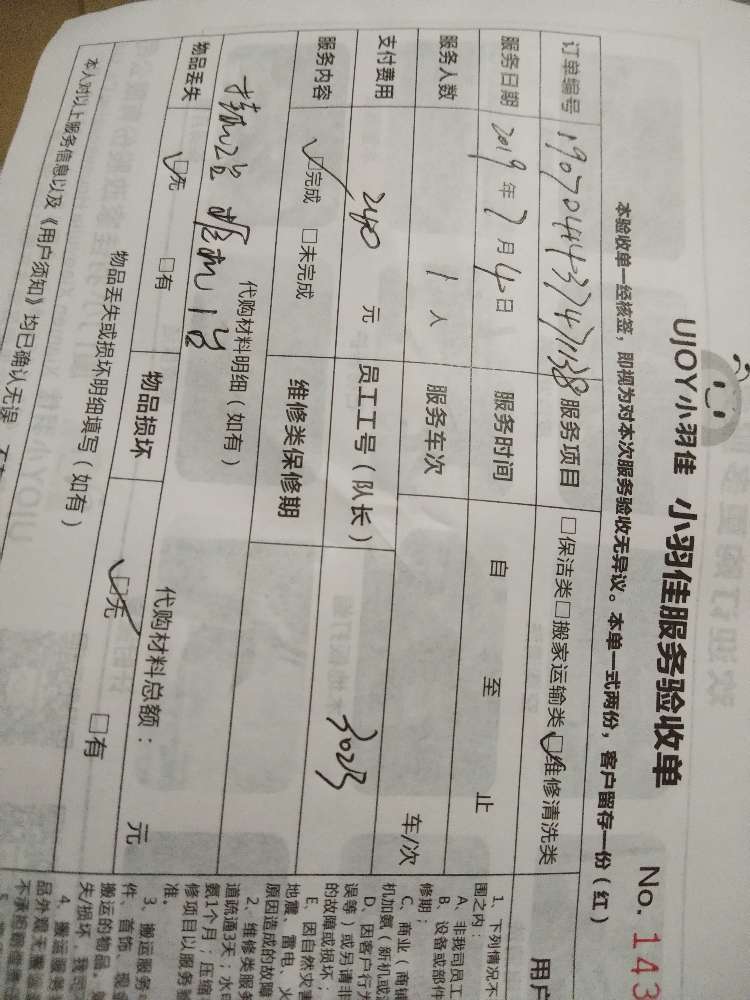 UJOY小羽佳 小羽佳服务验收单
No. 143
本验收单一经核签，即视为对本次服务验收无异议。本单一式两份，客户留存一份（红）
订单编号 服务项目 □保洁类□搬家运输类☑维修清洗类
服务日期 2019年7月4日 服务时间 自 至 止
服务人数 1人 服务车次 车/次
支付费用 240元 员工工号（队长） 3023
服务内容 ☑完成 □未完成 维修类保修期
代购材料明细（如有） 代购材料总额： 元
挂机2台 柜机1台
物品丢失 ☑无 □有 物品损坏 ☑无 □有
物品丢失或损坏明细填写（如有）
本人对以上服务信息以及《用户须知》均已确认无误
用户
1、下列情况不
围之内：
A、非我司员工
B、设备或部件
修期；
C、商业（商铺
机加氨（新机或
D、因客户行为
误等）或另请非
的故障或损坏；
E、因自然灾害
地震、雷电、火
原因造成的故障
2、维修类服务
道疏通3天；水电
氨1个月；压缩
修项目以服务
准。
3、搬运服务
件、首饰、现
搬运的物品，
失/损坏，我司
4、搬运服务
品外观无
不承担